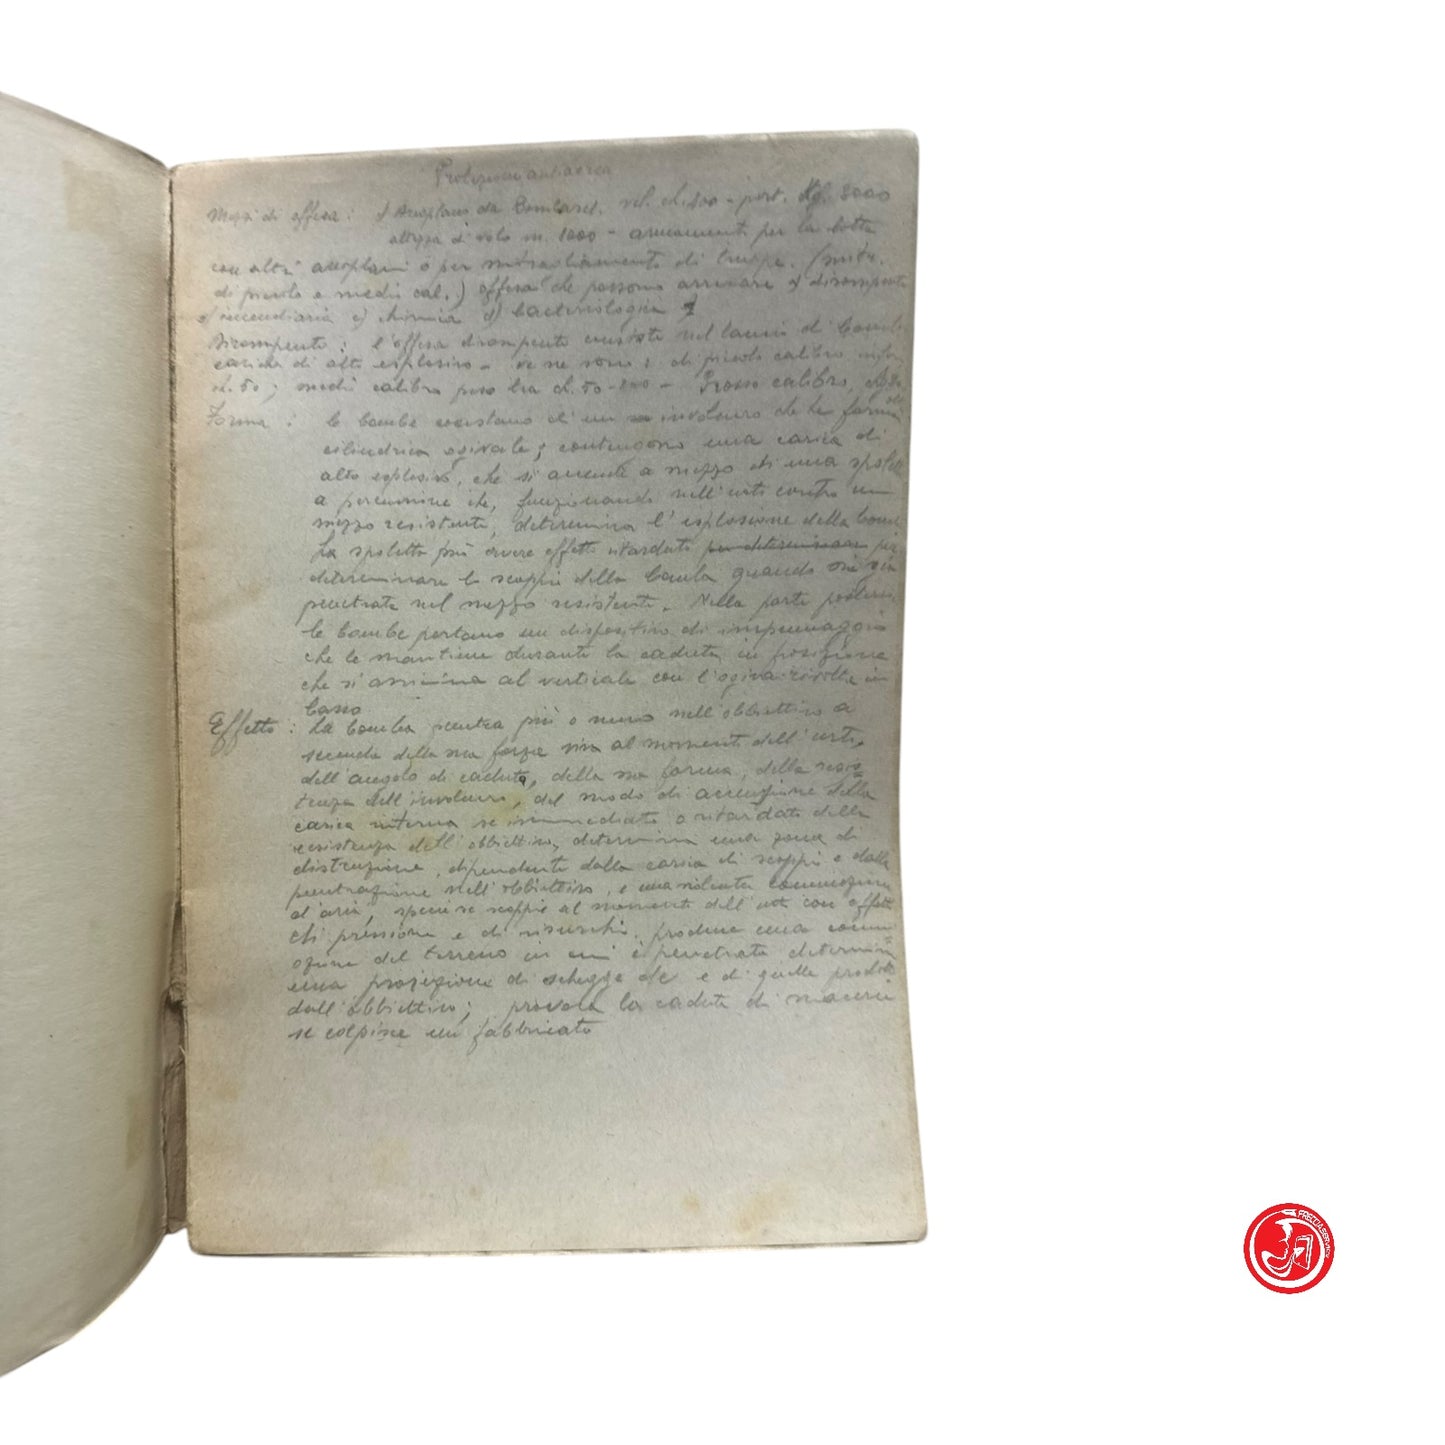 Protezione antiaerea
Mezzi di offesa: 1 Aeroplano da Bombard. vel. ch. 400 - port. Kg. 3000
altezza di volo m. 1000 - armamenti per la lotta
con altri aeroplani o per mitragliamento di truppe. (mitr.
di piccolo e medio cal.) offesa che possono arrecare a) dirompente
b) incendiaria c) chimica d) batteriologica
Dirompente: l'offesa dirompente consiste nel lancio di bombe
carica di alto esplosivo - ve ne sono: di piccolo calibro
ch. 50; medio calibro peso tra ch. 50 - - Grosso calibro,
Forma: le bombe consistono di un involucro che ha forma
cilindrica ogivale; contengono una carica di
alto esplosivo, che si accende a mezzo di una spoletta
a percussione che, funzionando nell'urto contro un
mezzo resistente, determina l'esplosione della bomba
La spoletta può avere effetto ritardato per determinare per
determinare lo scoppio della bomba quando sia
penetrata nel mezzo resistente. Nella parte posteriore
le bombe portano un dispositivo di impennaggio
che le mantiene durante la caduta in posizione
che si avvicina al verticale con l'ogiva rivolta in
basso
Effetto: La bomba penetra più o meno nell'obbiettivo a
seconda della sua forza viva al momento dell'urto,
dell'angolo di caduta, della sua forma, della resis-
tenza dell'involucro, del modo di accensione della
carica interna se immediato o ritardato della
resistenza dell'obbiettivo, determina una zona di
distruzione, dipendente dalla carica di scoppio e dalla
penetrazione nell'obbiettivo, e una violenta commozione
d'aria, specie se scoppia al momento dell'urto con effetti
di pressione e di risucchio, produce una commo
zione del terreno in cui è penetrata determina
una proiezione di schegge e di quelle prodotte
dall'obbiettivo; provoca la caduta di macerie
se colpisce un fabbricato
FRECCIASERVICE